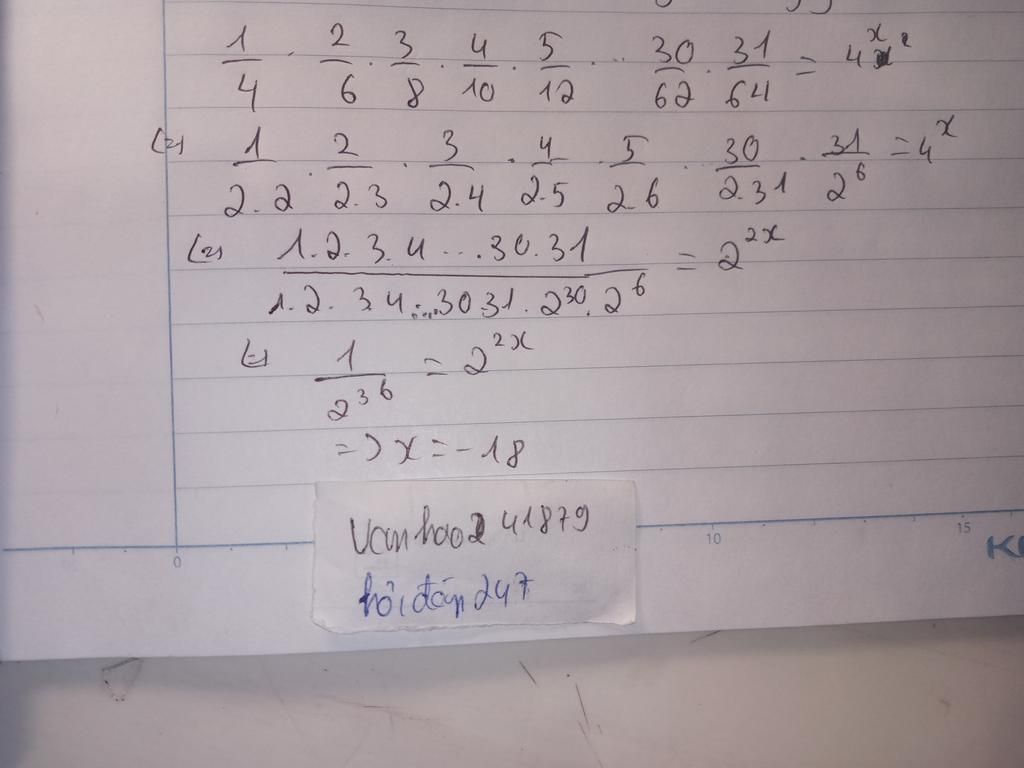 1/4 . 2/6 . 3/8 . 4/10 . 5/12 . ... 30/62 . 31/64 = 4^x
(=) 1/2.2 . 2/2.3 . 3/2.4 . 4/2.5 . 5/2.6 . 30/2.31 . 31/2^6 = 4^x
(=) 1.2.3.4....30.31/1.2.3.4....30.31.2^30.2^6 = 2^2x
(=) 1/2^36 = 2^2x
=> x = -18
0 10 15
Vanhao241879
hỏi đáp 247